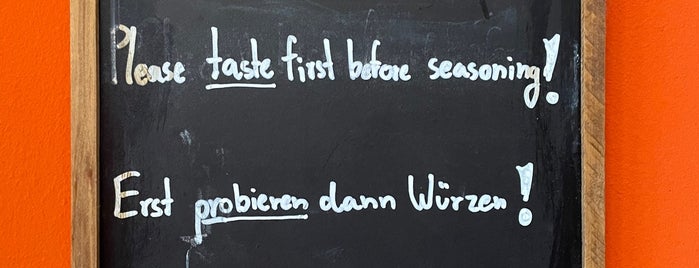 Please taste first before seasoning!
Erst probieren dann Würzen!